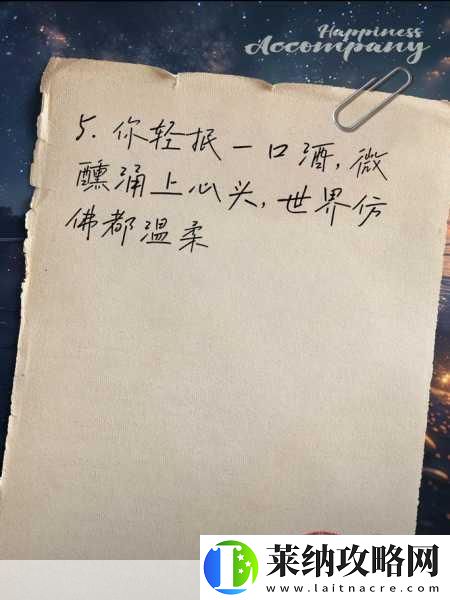 Happiness
Accompany
5. 你轻抿一口酒, 微
醺涌上心头, 世界仿
佛都温柔
莱纳攻略网
www.laitnacre.com